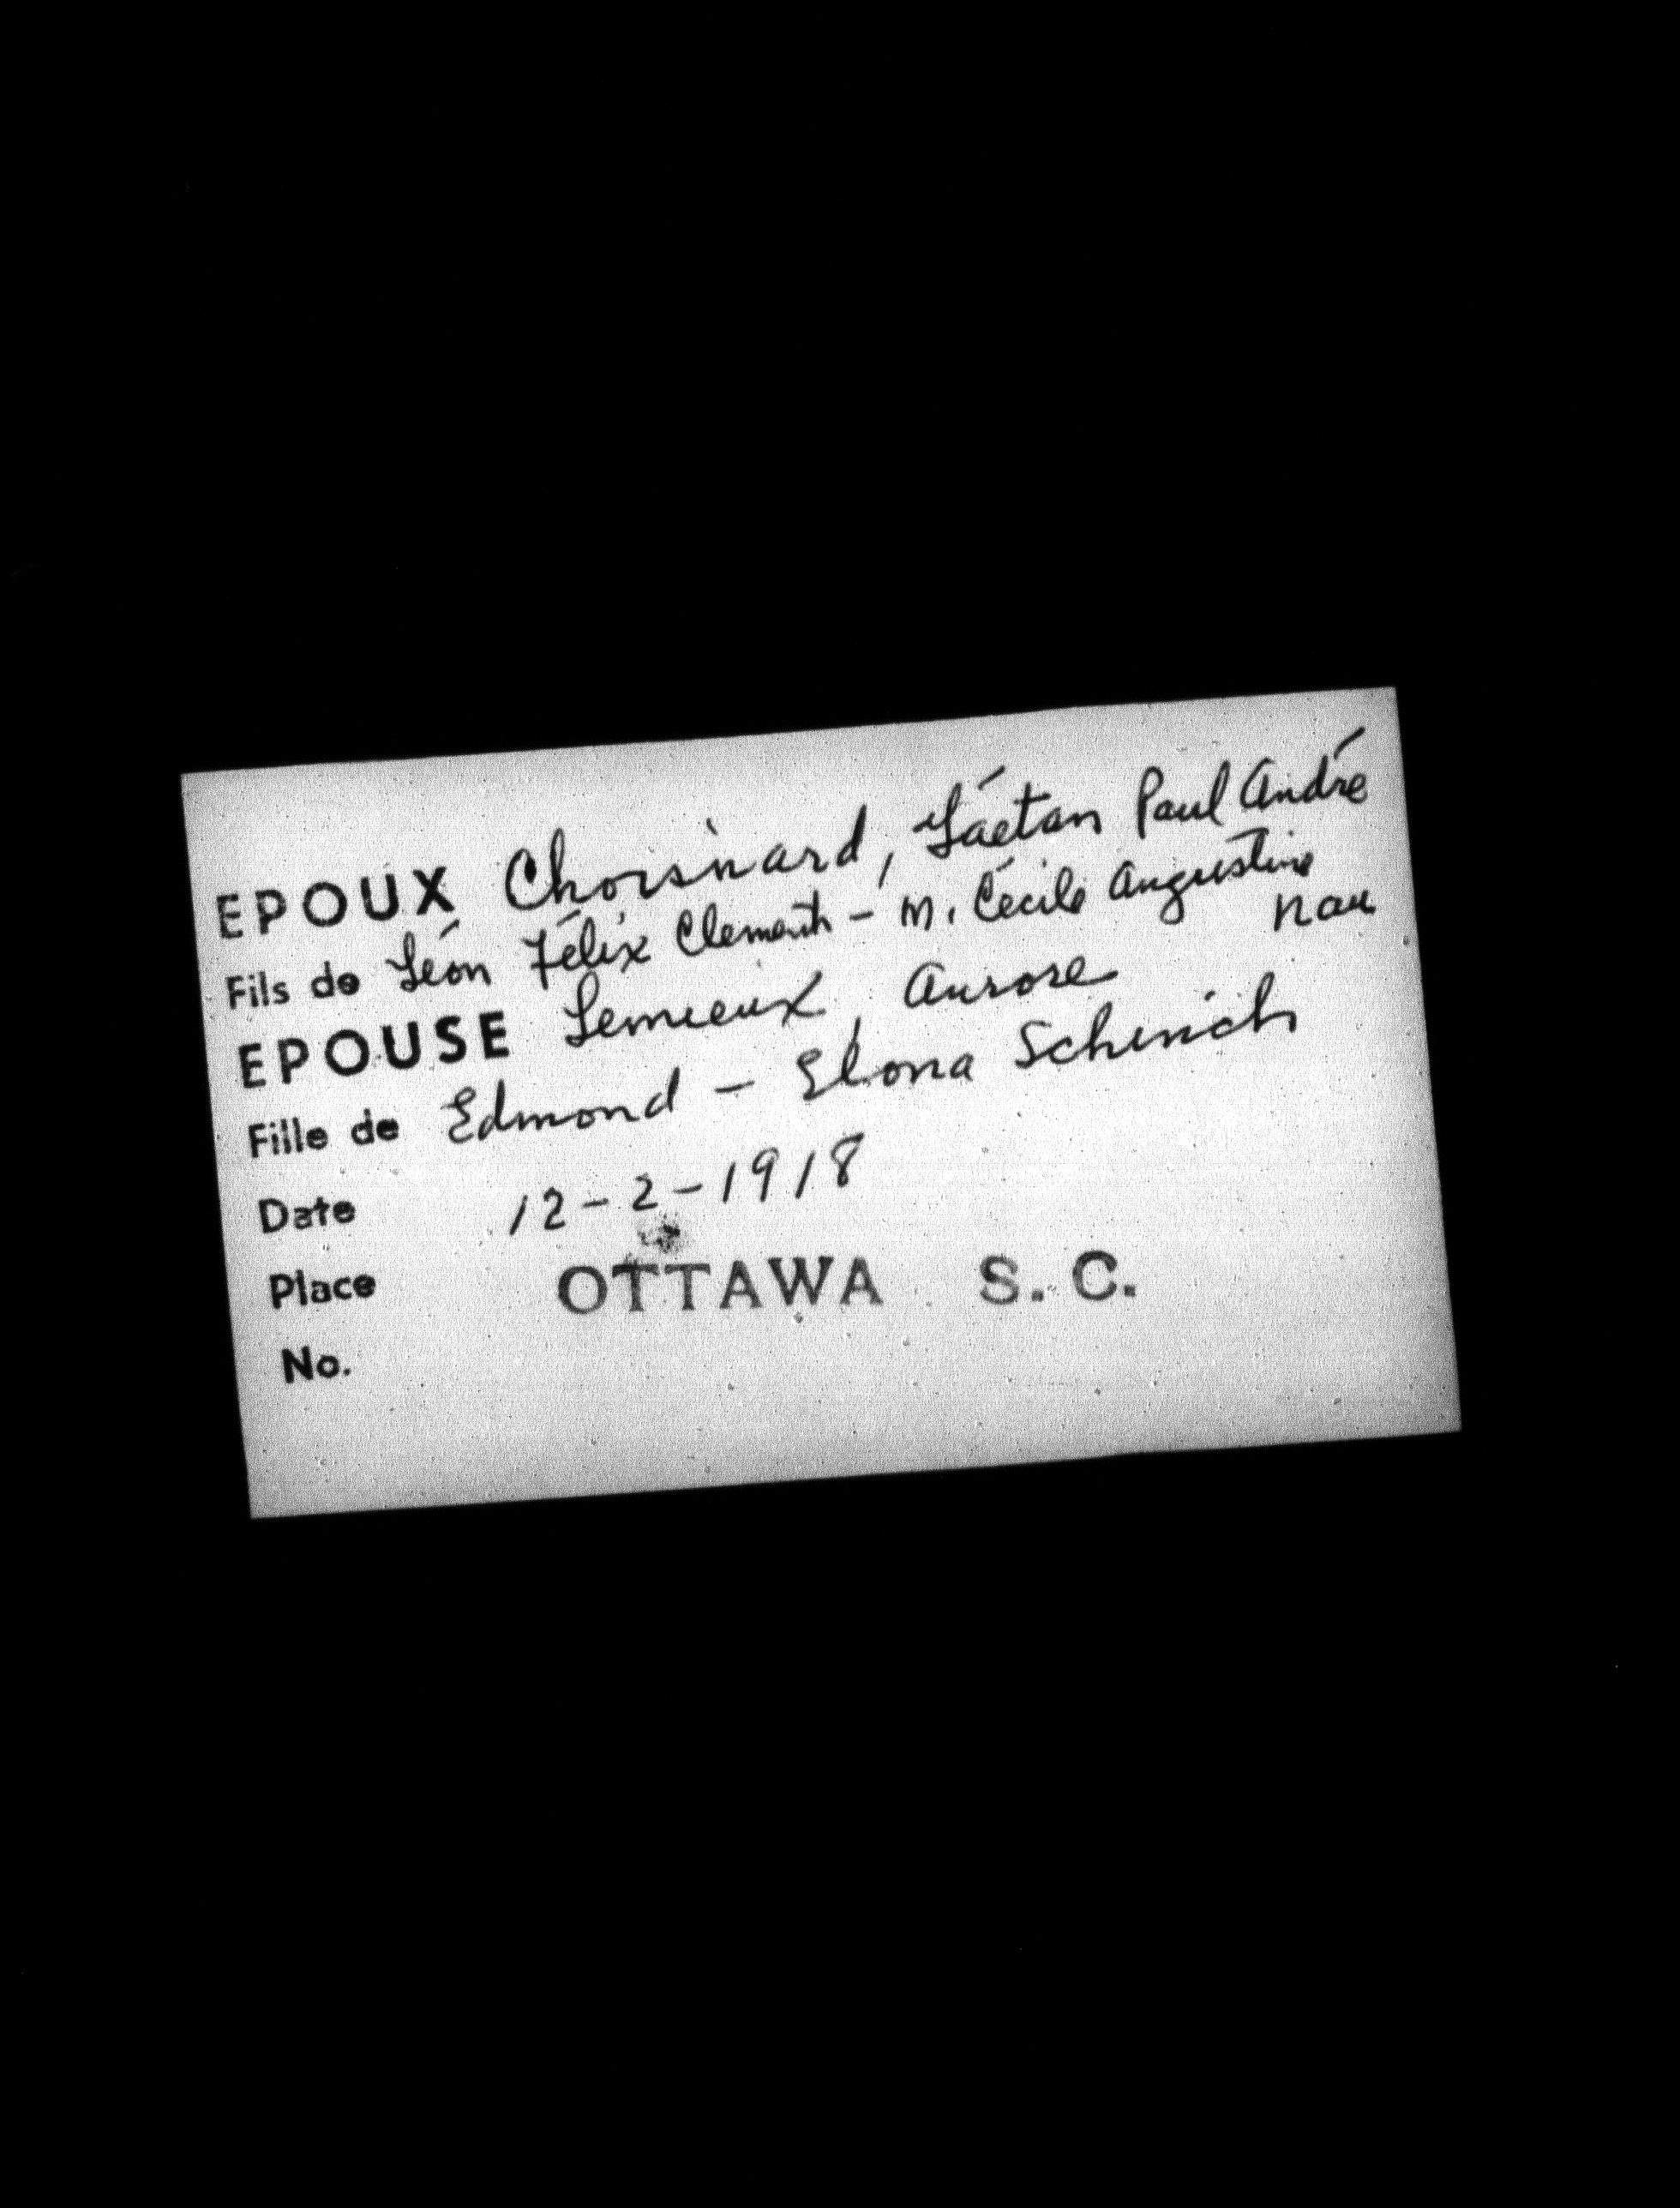 EPOUX Choisnard, Gáetan Paul André
Fils de Léon Félix Clement - M. Cécile Augustine
Nau
EPOUSE Lemieux, Aurore
Fille de Edmond - Elona Schinich
Date 12-2-1918
Place OTTAWA S. C.
No.